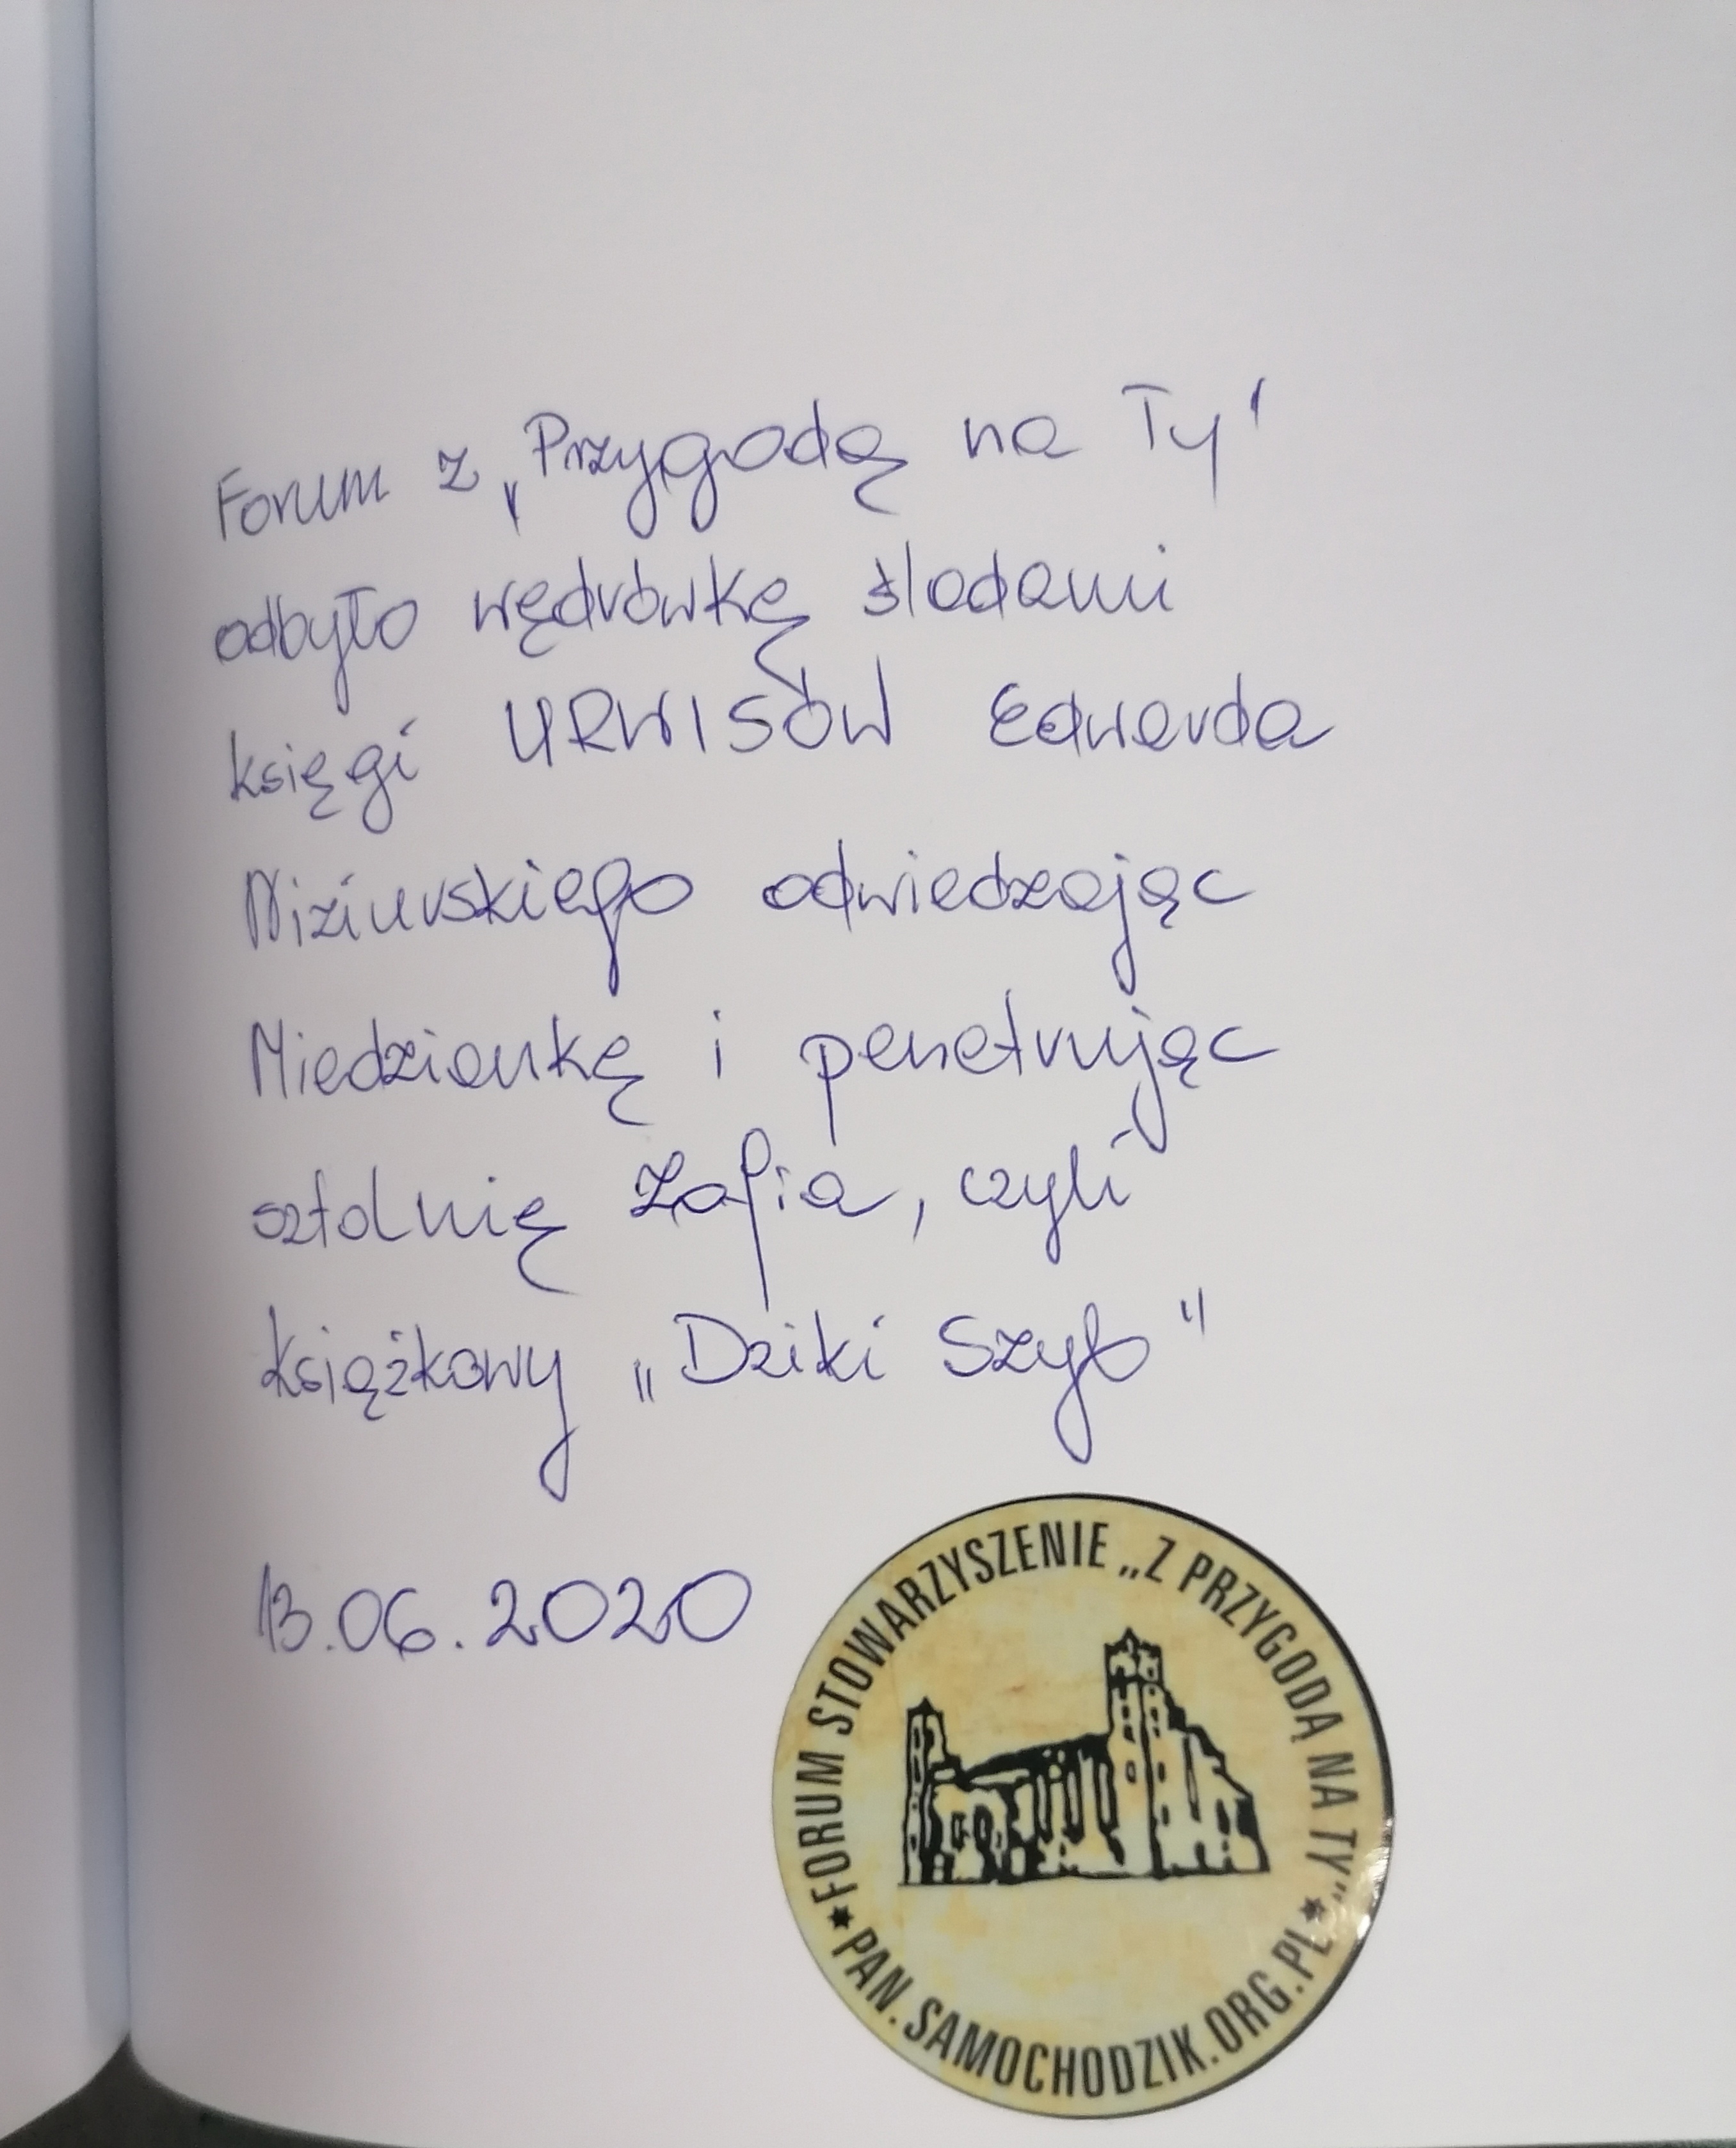 Forum z „Przygodą na Ty"
odbyło wędrówkę śladami
księgi URWISÓW Edwarda
Niziurskiego odwiedzając
Miedziankę i penetrując
sztolnię Zofia, czyli
książkowy „Dziki Szyb"
13.06.2020
FORUM STOWARZYSZENIE „Z PRZYGODĄ NA TY„
★ PAN.SAMOCHODZIK.ORG.PL ★